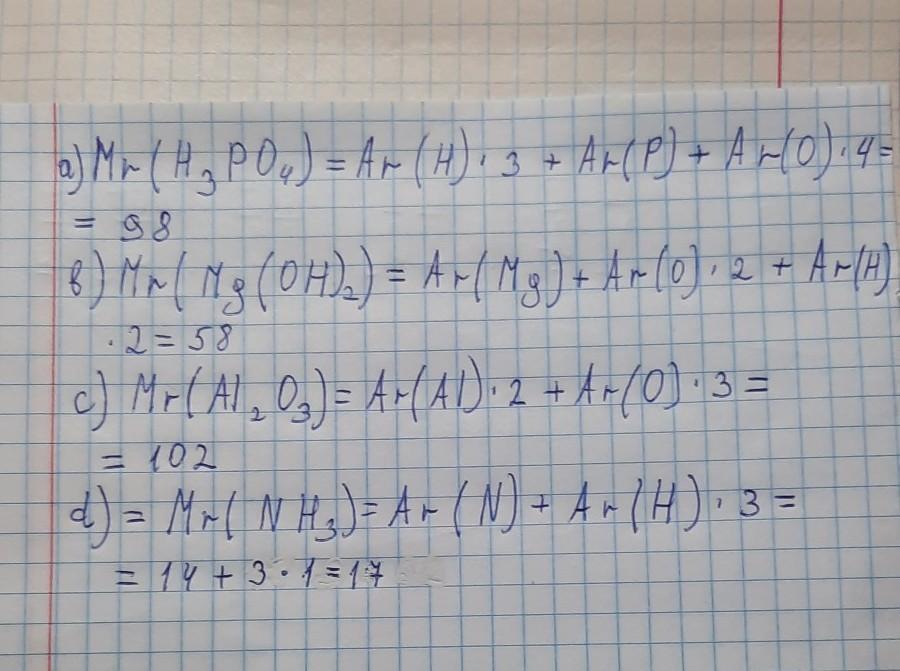 a) Mr(H₃PO₄) = Ar(H)·3 + Ar(P) + Ar(O)·4=
= 98
b) Mr(Mg(OH)₂) = Ar(Mg)+Ar(O)·2 + Ar(H)
·2=58
c) Mr(Al₂O₃)= Ar(Al)·2 +Ar(O)·3 =
= 102
d) = Mr(NH₃)=Ar(N) + Ar(H)·3 =
= 14 + 3·1=17